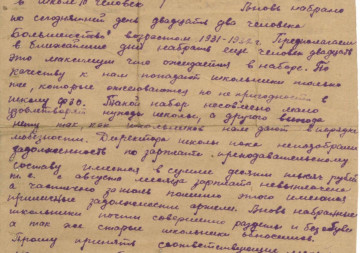 в школе 10 человек! Вновь набрано
по сегодняшний день двадцать два человека
Большинство возрастом 1931-1930 г. Предполагаем
в ближайшие дни набрать еще человек двадцать
это максимум что ожидается в наборе. По
качеству к нам попадают школьники только
те, которые оказываются по непригодности в
школу ФЗО. Такой набор несомненно мало
удовлетворяет нужды школы, а другого выхода
нету так как школьников нам дают в порядке
мобилизации. Директора школы пока не подобрали
задолженность по зарплате преподавательскому
составу имеется в сумме десяти тысяч рублей
т.е. с августа месяца зарплата невыплачена
а частично за июль кроме этого имеются
приличные задолженности армии. Вновь набранные
школьники почти совершенно раздеты и без обуви
а так же старые школьники относились.
Прошу принять соответствующие